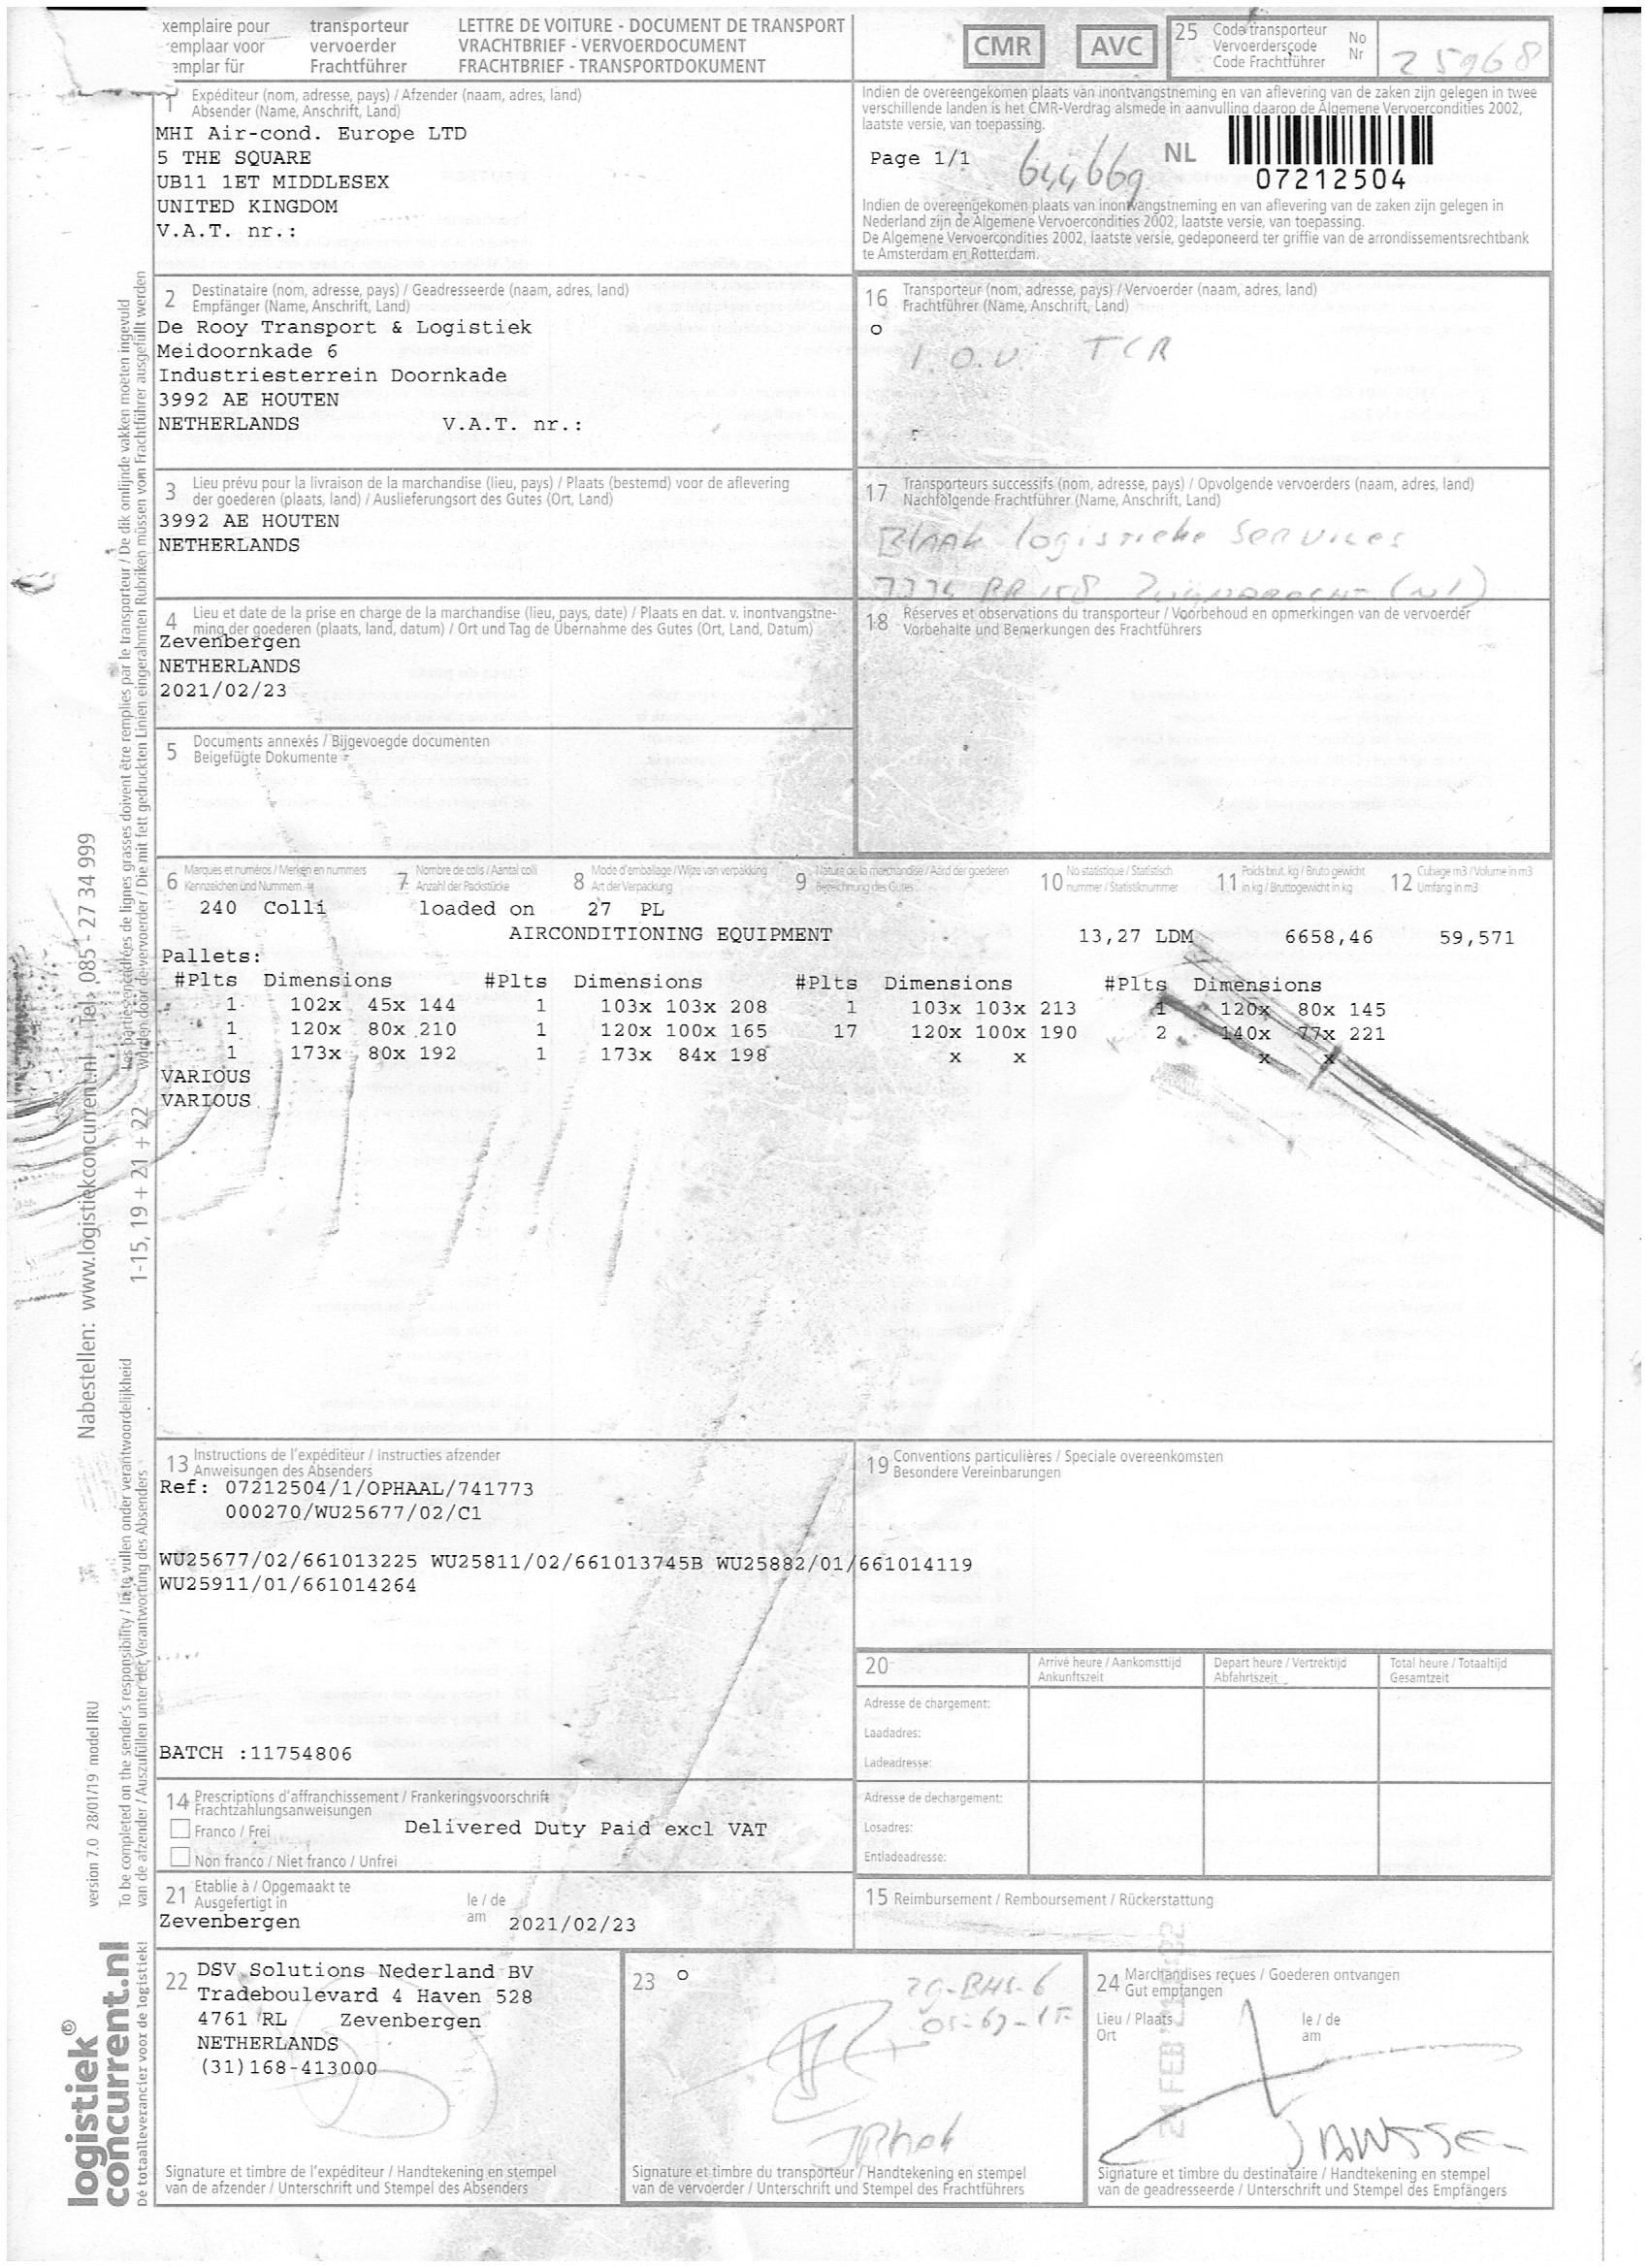 xemplaire pour transporteur LETTRE DE VOITURE - DOCUMENT DE TRANSPORT
emplaar voor vervoerder VRACHTBRIEF - VERVOERDOCUMENT
emplar für Frachtführer FRACHTBRIEF - TRANSPORTDOKUMENT
CMR AVC
25 Code transporteur No
Vervoerderscode Nr
Code Frachtführer
25968
1 Expéditeur (nom, adresse, pays) / Afzender (naam, adres, land)
Absender (Name, Anschrift, Land)
MHI Air-cond. Europe LTD
5 THE SQUARE
UB11 1ET MIDDLESEX
UNITED KINGDOM
V.A.T. nr.:
Indien de overeengekomen plaats van inontvangstneming en van aflevering van de zaken zijn gelegen in twee
verschillende landen is het CMR-Verdrag alsmede in aanvulling daarop de Algemene Vervoercondities 2002,
laatste versie, van toepassing.
Page 1/1 NL
07212504
Indien de overeengekomen plaats van inontvangstneming en van aflevering van de zaken zijn gelegen in
Nederland zijn de Algemene Vervoercondities 2002, laatste versie, van toepassing.
De Algemene Vervoercondities 2002, laatste versie, gedeponeerd ter griffie van de arrondissementsrechtbank
te Amsterdam en Rotterdam.
2 Destinataire (nom, adresse, pays) / Geadresseerde (naam, adres, land)
Empfänger (Name, Anschrift, Land)
De Rooy Transport & Logistiek
Meidoornkade 6
Industriesterrein Doornkade
3992 AE HOUTEN
NETHERLANDS V.A.T. nr.:
16 Transporteur (nom, adresse, pays) / Vervoerder (naam, adres, land)
Frachtführer (Name, Anschrift, Land)
o
I.O.V. TCR
3 Lieu prévu pour la livraison de la marchandise (lieu, pays) / Plaats (bestemd) voor de aflevering
der goederen (plaats, land) / Auslieferungsort des Gutes (Ort, Land)
3992 AE HOUTEN
NETHERLANDS
17 Transporteurs successifs (nom, adresse, pays) / Opvolgende vervoerders (naam, adres, land)
Nachfolgende Frachtführer (Name, Anschrift, Land)
logistieke Services
4 Lieu et date de la prise en charge de la marchandise (lieu, pays, date) / Plaats en dat. v. inontvangstne-
ming der goederen (plaats, land, datum) / Ort und Tag de Übernahme des Gutes (Ort, Land, Datum)
Zevenbergen
NETHERLANDS
2021/02/23
18 Réserves et observations du transporteur / Voorbehoud en opmerkingen van de vervoerder
Vorbehalte und Bemerkungen des Frachtführers
5 Documents annexés / Bijgevoegde documenten
Beigefügte Dokumente
6 Marques et numéros / Merken en nummers
Kennzeichen und Nummern
7 Nombre de colis / Aantal colli
Anzahl der Packstücke
8 Mode d'emballage / Wijze van verpakking
Art der Verpackung
9 Nature de la marchandise / Aard der goederen
Bezeichnung des Gutes
10 No statistique / Statistisch
nummer / Statistiknummer
11 Poids brut, kg / Bruto gewicht
in kg / Bruttogewicht in kg
12 Cubage m3 / Volume in m3
Umfang in m3
240 Colli loaded on 27 PL
AIRCONDITIONING EQUIPMENT 13,27 LDM 6658,46 59,571
Pallets:
#Plts Dimensions #Plts Dimensions #Plts Dimensions #Plts Dimensions
1 102x 45x 144 1 103x 103x 208 1 103x 103x 213 1 120x 80x 145
1 120x 80x 210 1 120x 100x 165 17 120x 100x 190 2 140x 77x 221
1 173x 80x 192 1 173x 84x 198 x x x x
VARIOUS
VARIOUS
13 Instructions de l'expéditeur / Instructies afzender
Anweisungen des Absenders
Ref: 07212504/1/OPHAAL/741773
000270/WU25677/02/C1
WU25677/02/661013225 WU25811/02/661013745B WU25882/01/661014119
WU25911/01/661014264
BATCH :11754806
19 Conventions particulières / Speciale overeenkomsten
Besondere Vereinbarungen
20 Arrivé heure / Aankomsttijd Depart heure / Vertrektijd Total heure / Totaaltijd
Ankunftszeit Abfahrtszeit Gesamtzeit
Adresse de chargement:
Laadadres:
Ladeadresse:
Adresse de dechargement:
Losadres:
Entladeadresse:
14 Prescriptions d'affranchissement / Frankeringsvoorschrift
Frachtzahlungsanweisungen
Franco / Frei Delivered Duty Paid excl VAT
Non franco / Niet franco / Unfrei
21 Etablie à / Opgemaakt te le / de
Ausgefertigt in am
Zevenbergen 2021/02/23
15 Reimbursement / Remboursement / Rückerstattung
22 DSV Solutions Nederland BV
Tradeboulevard 4 Haven 528
4761 RL Zevenbergen
NETHERLANDS
(31)168-413000
Signature et timbre de l'expéditeur / Handtekening en stempel
van de afzender / Unterschrift und Stempel des Absenders
23 o
Signature et timbre du transporteur / Handtekening en stempel
van de vervoerder / Unterschrift und Stempel des Frachtführers
24 Marchandises reçues / Goederen ontvangen
Gut empfangen
Lieu / Plaats le / de
Ort am
JANSSEN
Signature et timbre du destinataire / Handtekening en stempel
van de geadresseerde / Unterschrift und Stempel des Empfängers
Nabestellen: www.logistiekconcurrent.nl Tel. 085 - 27 34 999
Les parties encadrées de lignes grasses doivent être remplies par le transporteur / De dik omlijnde vakken moeten ingevuld
worden door de vervoerder / Die mit fett gedruckten Linien eingerahmten Rubriken müssen vom Frachtführer ausgefüllt werden
1-15, 19 + 21 + 22
To be completed on the sender's responsibility / In te vullen onder verantwoordelijkheid
van de afzender / Auszufüllen unter der Verantwortung des Absenders
version 7.0 28/01/19 model IRU
logistiek®
concurrent.nl
Dé totaalleverancier voor de logistiek!